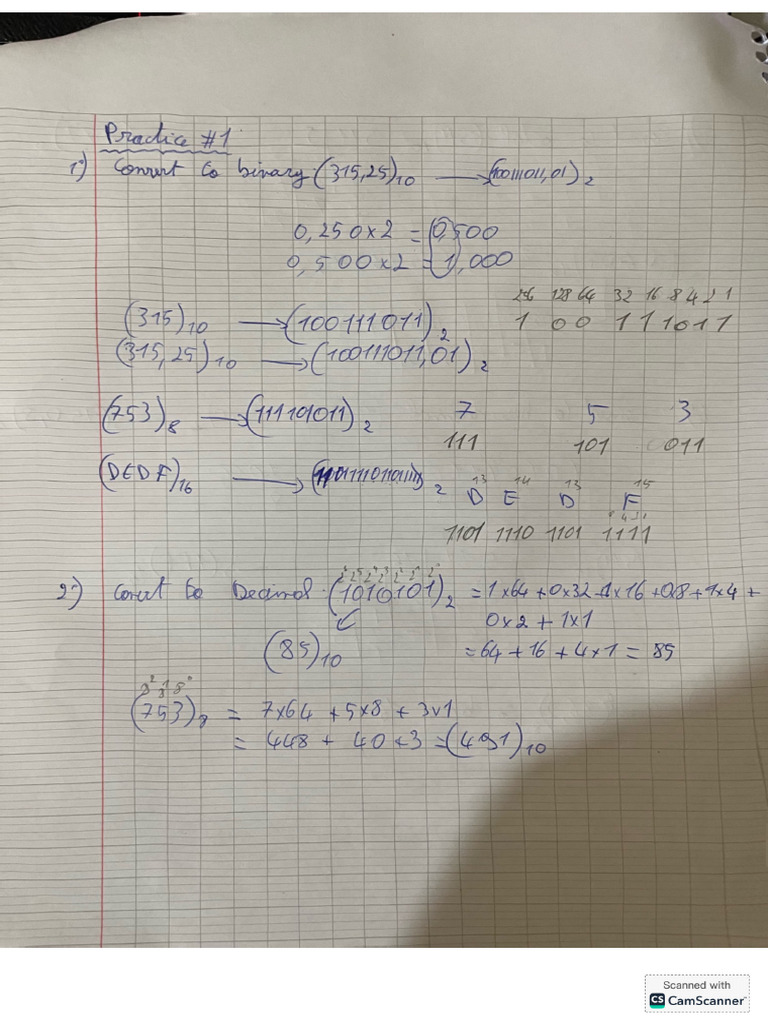 Practice #1
1°) Convert to binary (315,25)10 → (100111011,01)2
0,250x2 = 0,500
0,500x2 = 1,000
256 128 64 32 16 8 4 2 1
(315)10 → (100111011)2 1 0 0 1 1 1 0 1 1
(315,25)10 → (100111011,01)2
(753)8 → (111101011)2 7 5 3
111 101 011
13 14 13 15
(DEDF)16 → 2 D E D F
8 4 2 1
1101 1110 1101 1111
2°) Decimal (1010101)2 = 1x64 + 0x32 + 1x16 + 0x8 + 1x4 +
0x2 + 1x1
(85)10 = 64 + 16 + 4x1 = 85
8² 8¹ 8⁰
(753)8 = 7x64 + 5x8 + 3x1
= 448 + 40 + 3 = (491)10
Scanned with
CS CamScanner